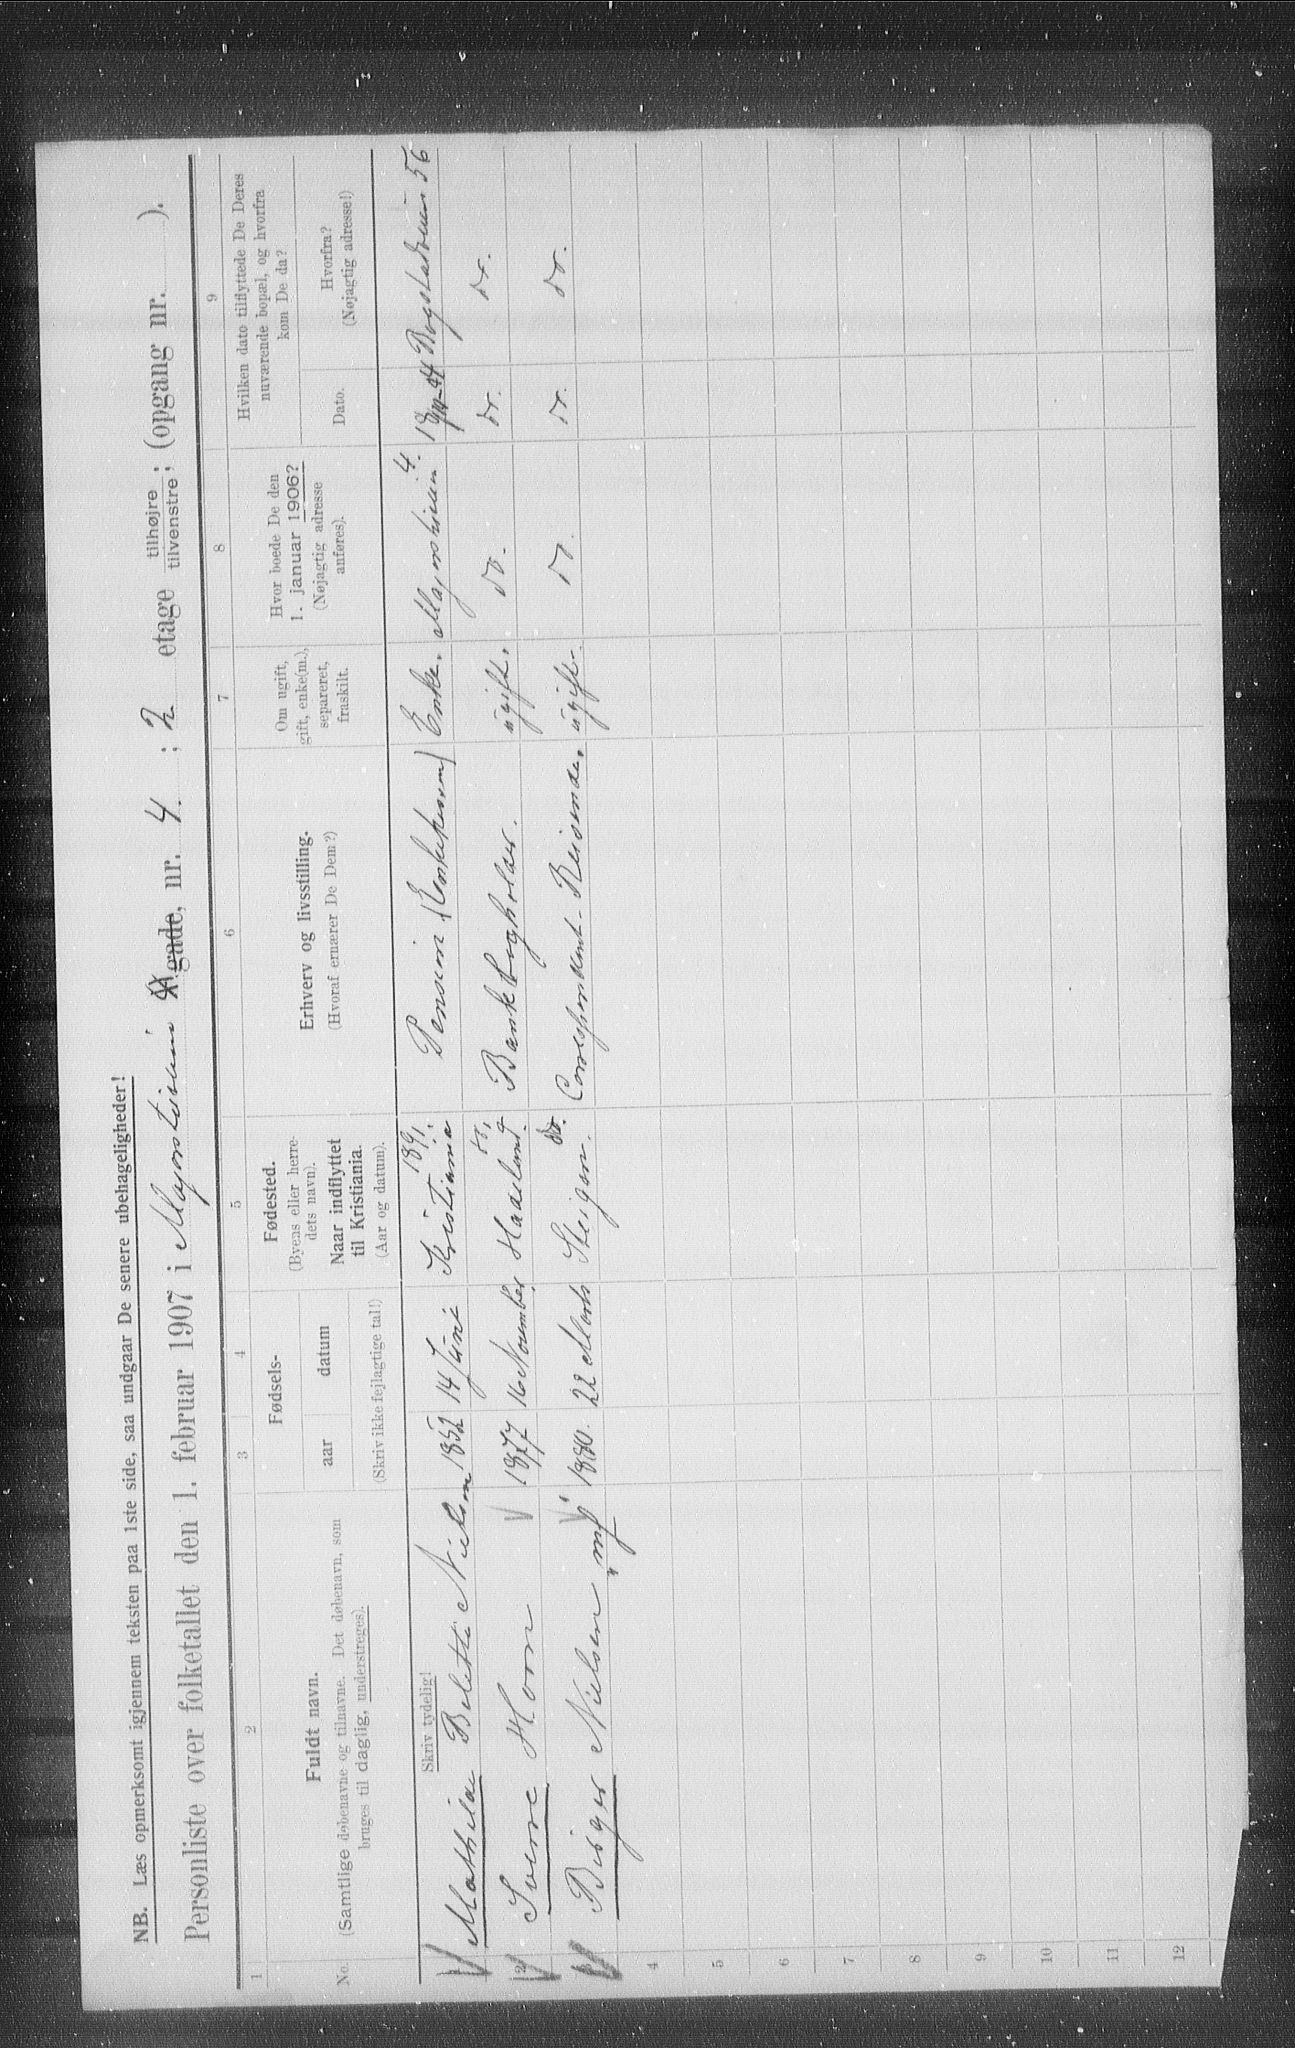 NB. Læs opmerksomt igjennem teksten paa 1ste side, saa undgaar De senere ubehageligheder!
Personliste over folketallet den 1. februar 1907 i Majorstuveien gade, nr. 4. ; 2 etage tilhøjre tilvenstre; (opgang nr. ).
1 2 3 4 5 6 7 8 9
No.
Fuldt navn.
(Samtlige døbenavne og tilnavne. Det døbenavn, som
bruges til daglig, understreges).
Fødsels-
aar datum
(Skriv ikke fejlagtige tal!)
Fødested.
(Byens eller herre-
dets navn).
Naar indflyttet
til Kristiania.
(Aar og datum).
Erhverv og livsstilling.
(Hvoraf ernærer De Dem?)
Om ugift,
gift, enke(m.),
separeret,
fraskilt.
Hvor boede De den
1. januar 1906?
(Nøjagtig adresse
anføres).
Hvilken dato tilflyttede De Deres
nuværende bopæl, og hvorfra
kom De da?
Dato.
Hvorfra?
(Nøjagtig adresse!)
Skriv tydelig!
Mathilde Bolette Nielsen 1852 14 Juni Kristiania 1891. Pension (Enkekasse) Enke. 4. Bogstadveien 56
2 Sverre Horn 1877 16 November Hadeland do. Bankbogholder. ugift. do. do. do.
Birger Nielsen 1880. 22 Marts Steigen. do. Correspondent-Reisende. ugift. do. do. do.
"mf"
4
5
6
7
8
9
10
11
12